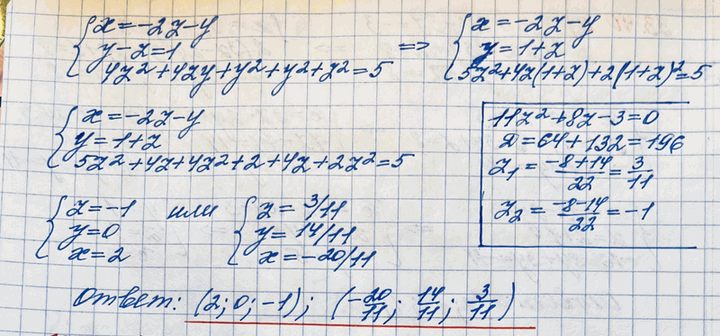 x=-2z-y
y-z=1
4z²+4zy+y²+y²+z²=5
=>
x=-2z-y
y=1+z
5z²+4z(1+z)+2(1+z)²=5
x=-2z-y
y=1+z
5z²+4z+4z²+2+4z+2z²=5
11z²+8z-3=0
D=64+132=196
z₁=(-8+14)/22=3/11
z₂=(-8-14)/22=-1
z=-1
y=0
x=2
или
z=3/11
y=14/11
x=-20/11
Ответ: (2;0;-1); (-20/11; 14/11; 3/11)